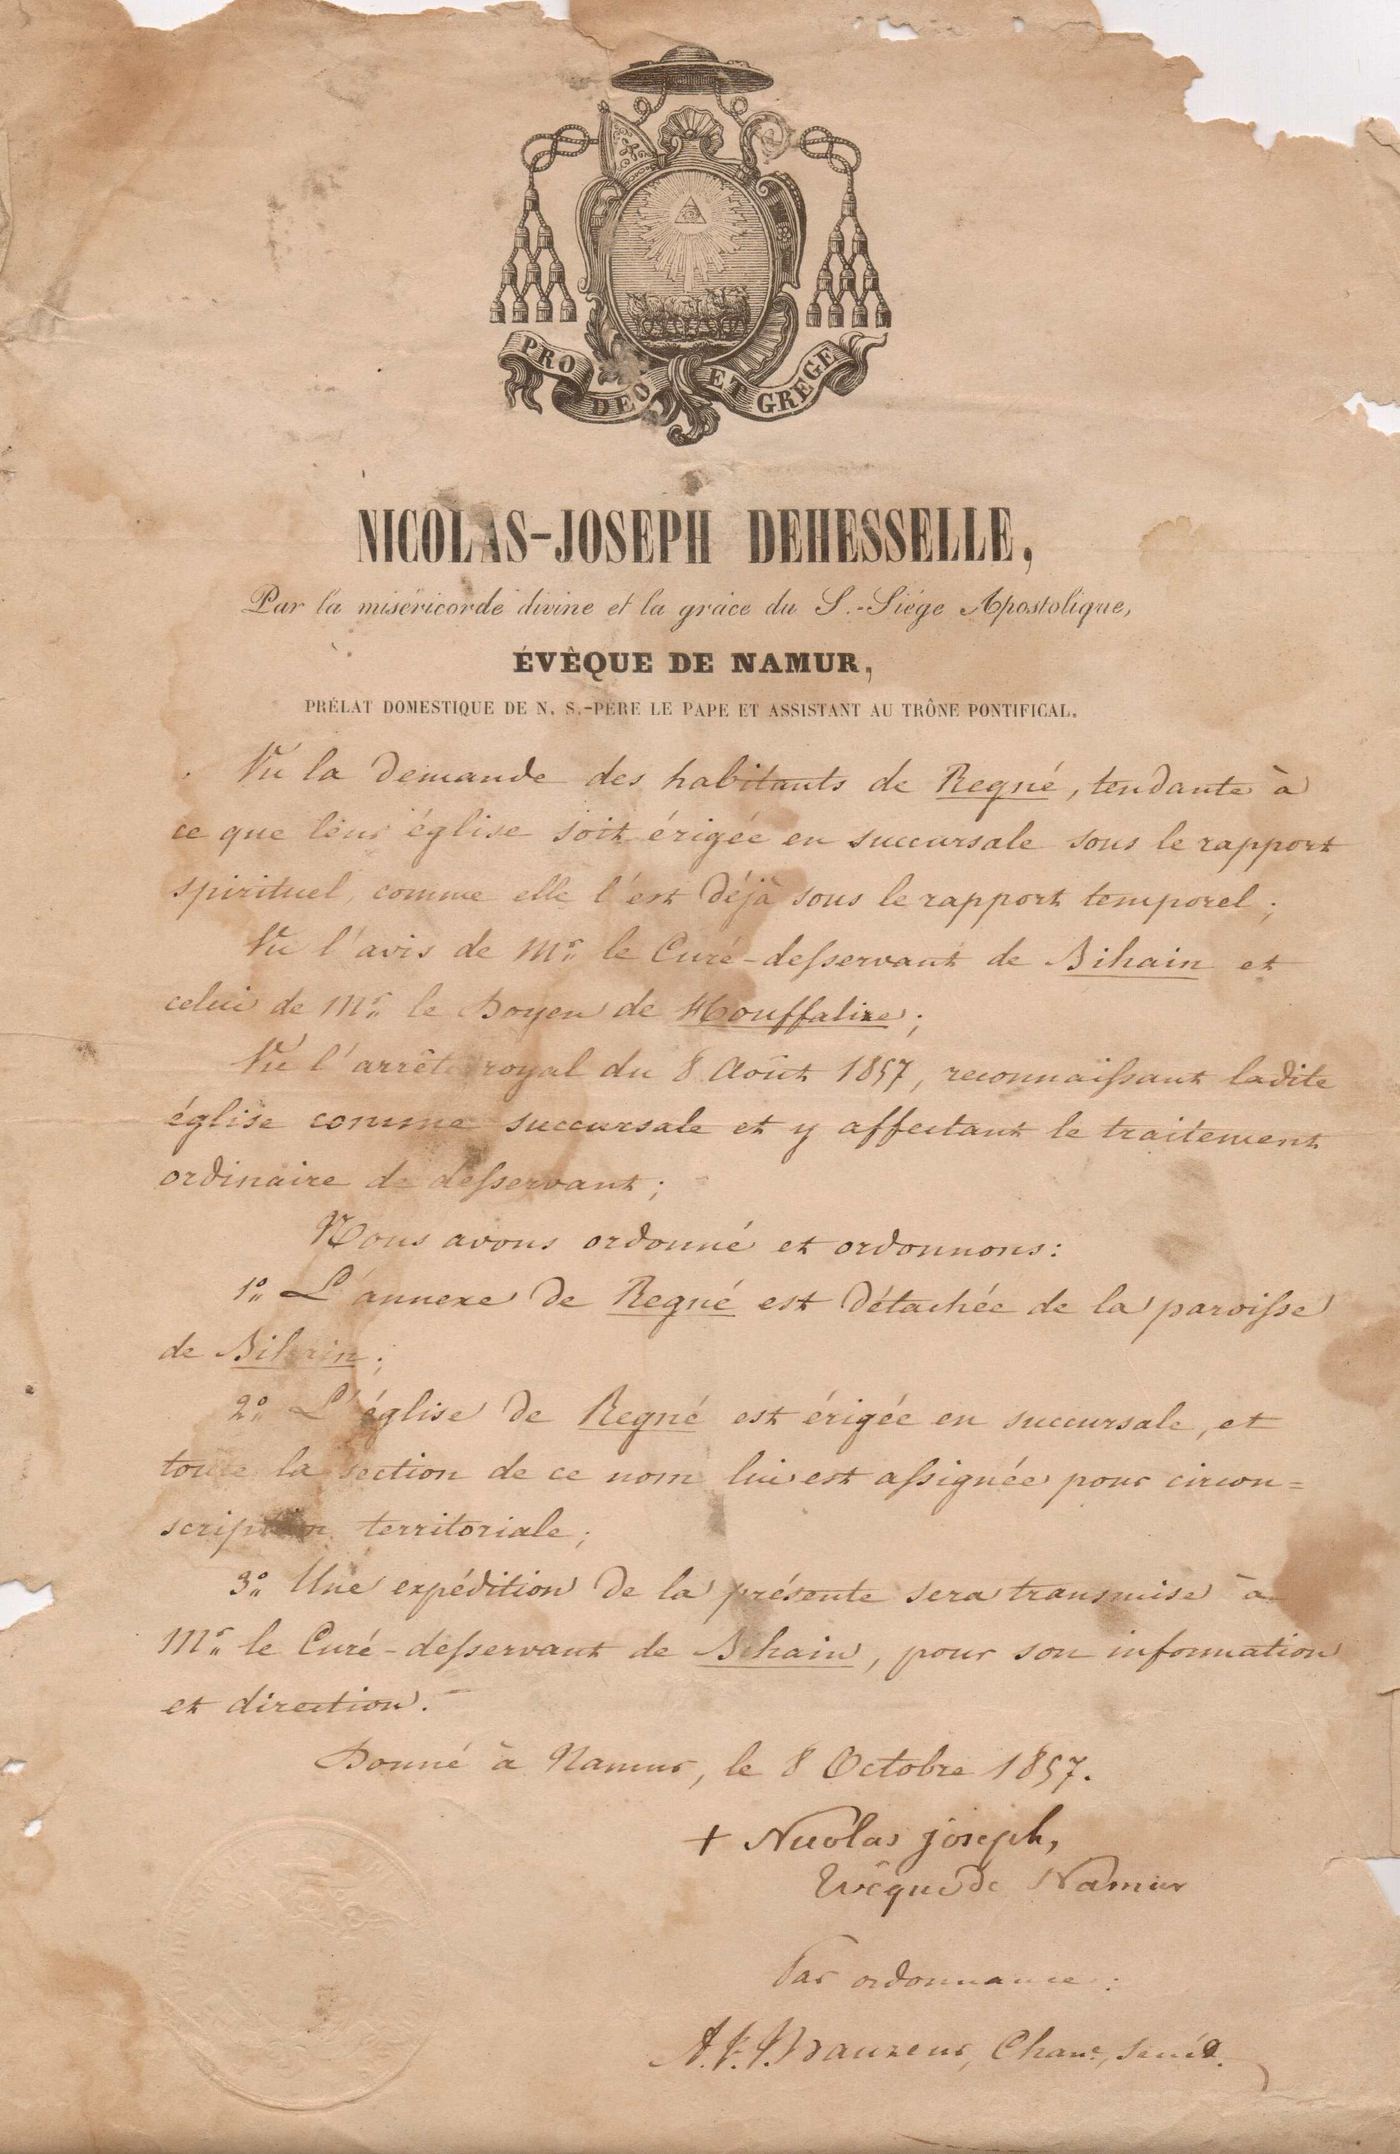 PRO DEO ET GREGE
NICOLAS-JOSEPH DEHESSELLE,
Par la miséricorde divine et la grâce du S.-Siége Apostolique,
ÉVÊQUE DE NAMUR,
PRÉLAT DOMESTIQUE DE N. S.-PÈRE LE PAPE ET ASSISTANT AU TRÔNE PONTIFICAL.
Vu la demande des habitants de Regné, tendante à
ce que leur église soit érigée en succursale sous le rapport
spirituel, comme elle l'est déjà sous le rapport temporel;
Vu l'avis de Mr. le Curé-desservant de Bihain et
celui de Mr. le Doyen de Houffalize;
Vu l'arrêté royal du 8 Août 1857, reconnaissant ladite
église comme succursale et y affectant le traitement
ordinaire de desservant;
Nous avons ordonné et ordonnons:
1o. L'annexe de Regné est détachée de la paroisse
de Bihain;
2o. L'église de Regné est érigée en succursale, et
toute la section de ce nom lui est assignée pour circon=
scription territoriale;
3o. Une expédition de la présente sera transmise à
Mr. le Curé-desservant de Bihain, pour son information
et direction.
Donné à Namur, le 8 Octobre 1857.
+ Nicolas joseph,
Evêque de Namur
Par ordonnance:
Chane,